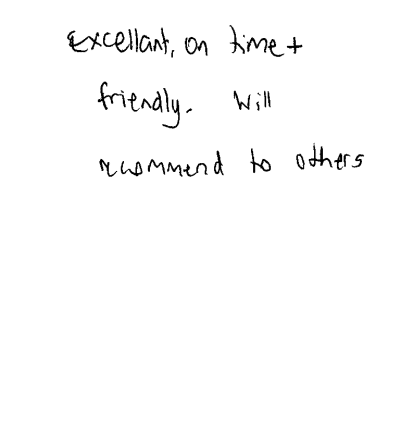 excellant, on time +
friendly. Will
recommend to others